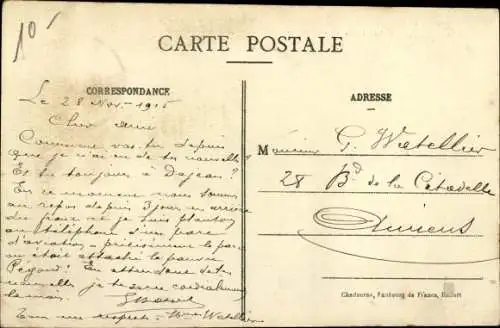 10-
CARTE POSTALE
CORRESPONDANCE
ADRESSE
Le 28 Nov. 1915
Cher ami
Comment vas-tu depuis
que je n'ai eu de tes nouvelles
Es tu toujours à
En ce moment nous sommes
au repos depuis 3 jours en arrière
du front et je suis planton
au téléphone d'un parc
d'aviation - précisément le parc
où était attaché le pauvre
Pégoud. En attendant de tes
nouvelles je te serre cordialement
la main.
mes respects à Mme Watellier
Monsieur G. Watellier
28 Bd de la Citadelle
Amiens
Chadourne, Faubourg de France, Belfort